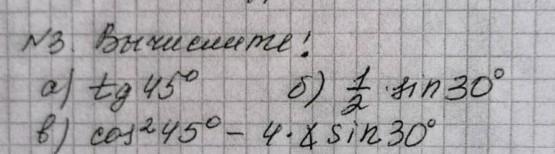 №3. Вычислите!
а) tg 45° б) 1/2 · sin 30°
в) cos² 45° − 4 · sin 30°